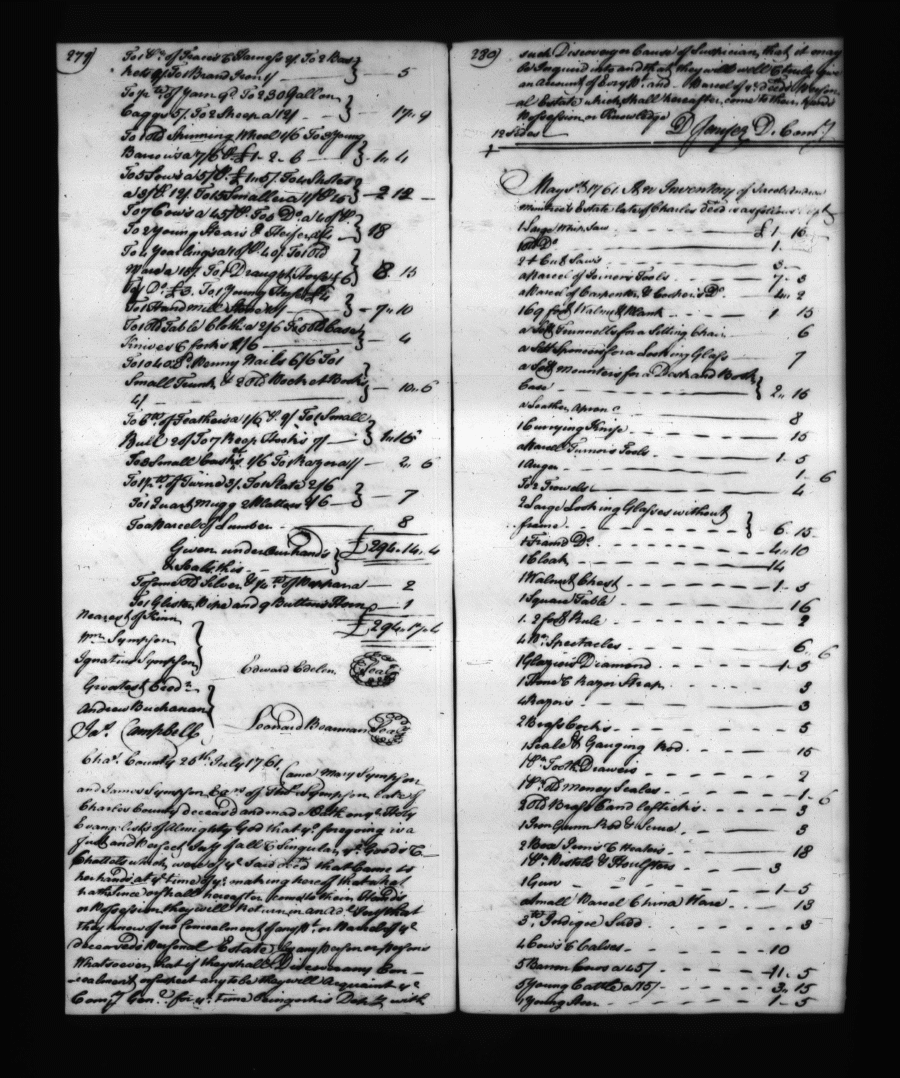 279
To 1 Pr. of Traces & Harness 9/ To 2 Bas
kets 9/ To 1 Brand Iron 4/ 5
To pcl. of Yarn 9d To 2 30 Gallon
Caggs 5/. To 2 Sheep a 12/ 17 „ 9
To 1 Old Spinning Wheel 1/6 To 3 Young
Barrows a 7/6 P. £1 - 2 - 6 1 „ 4
To 5 Sows a 5/ P. £1 „ 5/. To 4 Shoats
a 3/ P. 12/. To 15 Smaller a 1/ P. 15 2 12
To 7 Cows a 45/ P. To 5 Do. a 40/ P.
To 2 Young Stears & Heifer 18
To 4 Yearlings a 10/ P. 40/. To 1 Old
Mare a 10/. To 1 Draught Horse £6 8 . 15
To 1 Do. £3. To 1 Young Horse £4
To 1 Hand Mill Stone 10/ 7 „ 10
To 1 Old Table Cloth a 2/6 To 5 Old Case
Knives & forks 1/6 4
To 1040 8d. Penny Nails 6/6 To 1
Small Trunk & 2 Old Books & Books
4/ 10 „ 6
To 6 lb of Feathers a 1/6 P. 9/ To 1 Small
Bull 20/ To 7 Reap Hooks 9/ 1 „ 15
To 3 Small Casks 1/6 To 1 Razor a 1/ 2 „ 6
To 1 pcl. of Twine 3/. To 1 Slate 2/6
To 1 Quart Mugg 2 Platters 1/6 7
To a Parcel of Lumber 8
Given under Our hands
& Seals this £294 „ 14 „ 4
To some Old Silver & pcl. of 2
To 1 Glister Pipe and 9 Buttons Horn 1
£294 „ 17 „ 4
Nearest of Kinn
Wm. Sympson
Ignatius Sympson Edward Edelen Seal
Greatest Cred.rs
Andrew Buchanan
Jas. Campbell Leonard Boarman Seal
Chas. County 25th. July 1761
Came Mary Sympson
and James Sympson Exrs. of Thos. Sympson late of
Charles County deceased and made Oath on ye Holy
Evangelists of Almighty God that ye. foregoing is a
Just and Perfect Inty. of all & Singular ye. Goods &
Chattels which were of ye. Said deced. that Came to
her hands at ye time of ye. making hereof that what
hath Since or shall hereafter come to their Hands
or Possession they will Return in an ad. Inty. that
they know of no Concealment of any Pt. or Parcel of ye.
deceaseds Personal Estate by any Person or Persons
Whatsoever, that if they shall Discover any Con
cealment or suspect any to be they will Acquaint ye.
Comy. Gen.l for ye. time Being or his Deputy with
280
such Discovery or Cause of Suspicion, that it may
be Inquired into and that they will well & truly give
an Account of Every Pt. and Parcel of ye. deceds Person
al Estate which shall hereafter come to their Hands
Possession or Knowledge
12 Sides D Jenifer D. Comy.
May 1761 An Inventory of
Estate late of Charles deced is as follows
1 Large Whip Saw £1 - 15
1 Old Do. 1
2 + Cut Saws 3
a Parcel of Joiners Tools 7 - 3
a Parcel of Carpenters & Coopers Do. 4 „ 2
169 foot Walnut Plank 1 15
a Sett Trunnells for a Setting Chair 6
a Sett for a Looking Glass 7
a Sett Mounters for a Desk and Book
Case 2 „ 15
a Leather Apron 8
1 Currying Knife 15
a Parcel Turners Tools 1 - 5
1 Auger 1 - 6
To 2 Trowels 4
2 Large Looking Glasses without
frame 6 . 15
1 Framd Do. 4 „ 10
1 Cloak 14
1 Walnut Chest 1 - 5
1 Square Table 16
1 . 2 foot Rule 2
4 Pr. Spectacles 6 . 6
1 Glaziers Diamond 1 - 5
1 Hone & Razor Strap 3
4 Razors 3
2 Brass Cocks 5
1 Scale & Gauging Rod 15
1 Pr. Tooth Drawers 2
1 Pr. Old Money Scales 1 - 6
2 Old Brass Candlesticks 3
1 Iron Rod & 3
2 Box Irons & Heaters 18
1 Pr. Pistols & Holsters 3
1 Gun 1 - 5
a Small Parcel China Ware 13
3 lb. Indigoe Seed 3
4 Cows & Calves 10
5 Barren Cows a 45/ 11 . 5
5 Young Cattle a 15/ 3 „ 15
1 Young Steer 1 - 5